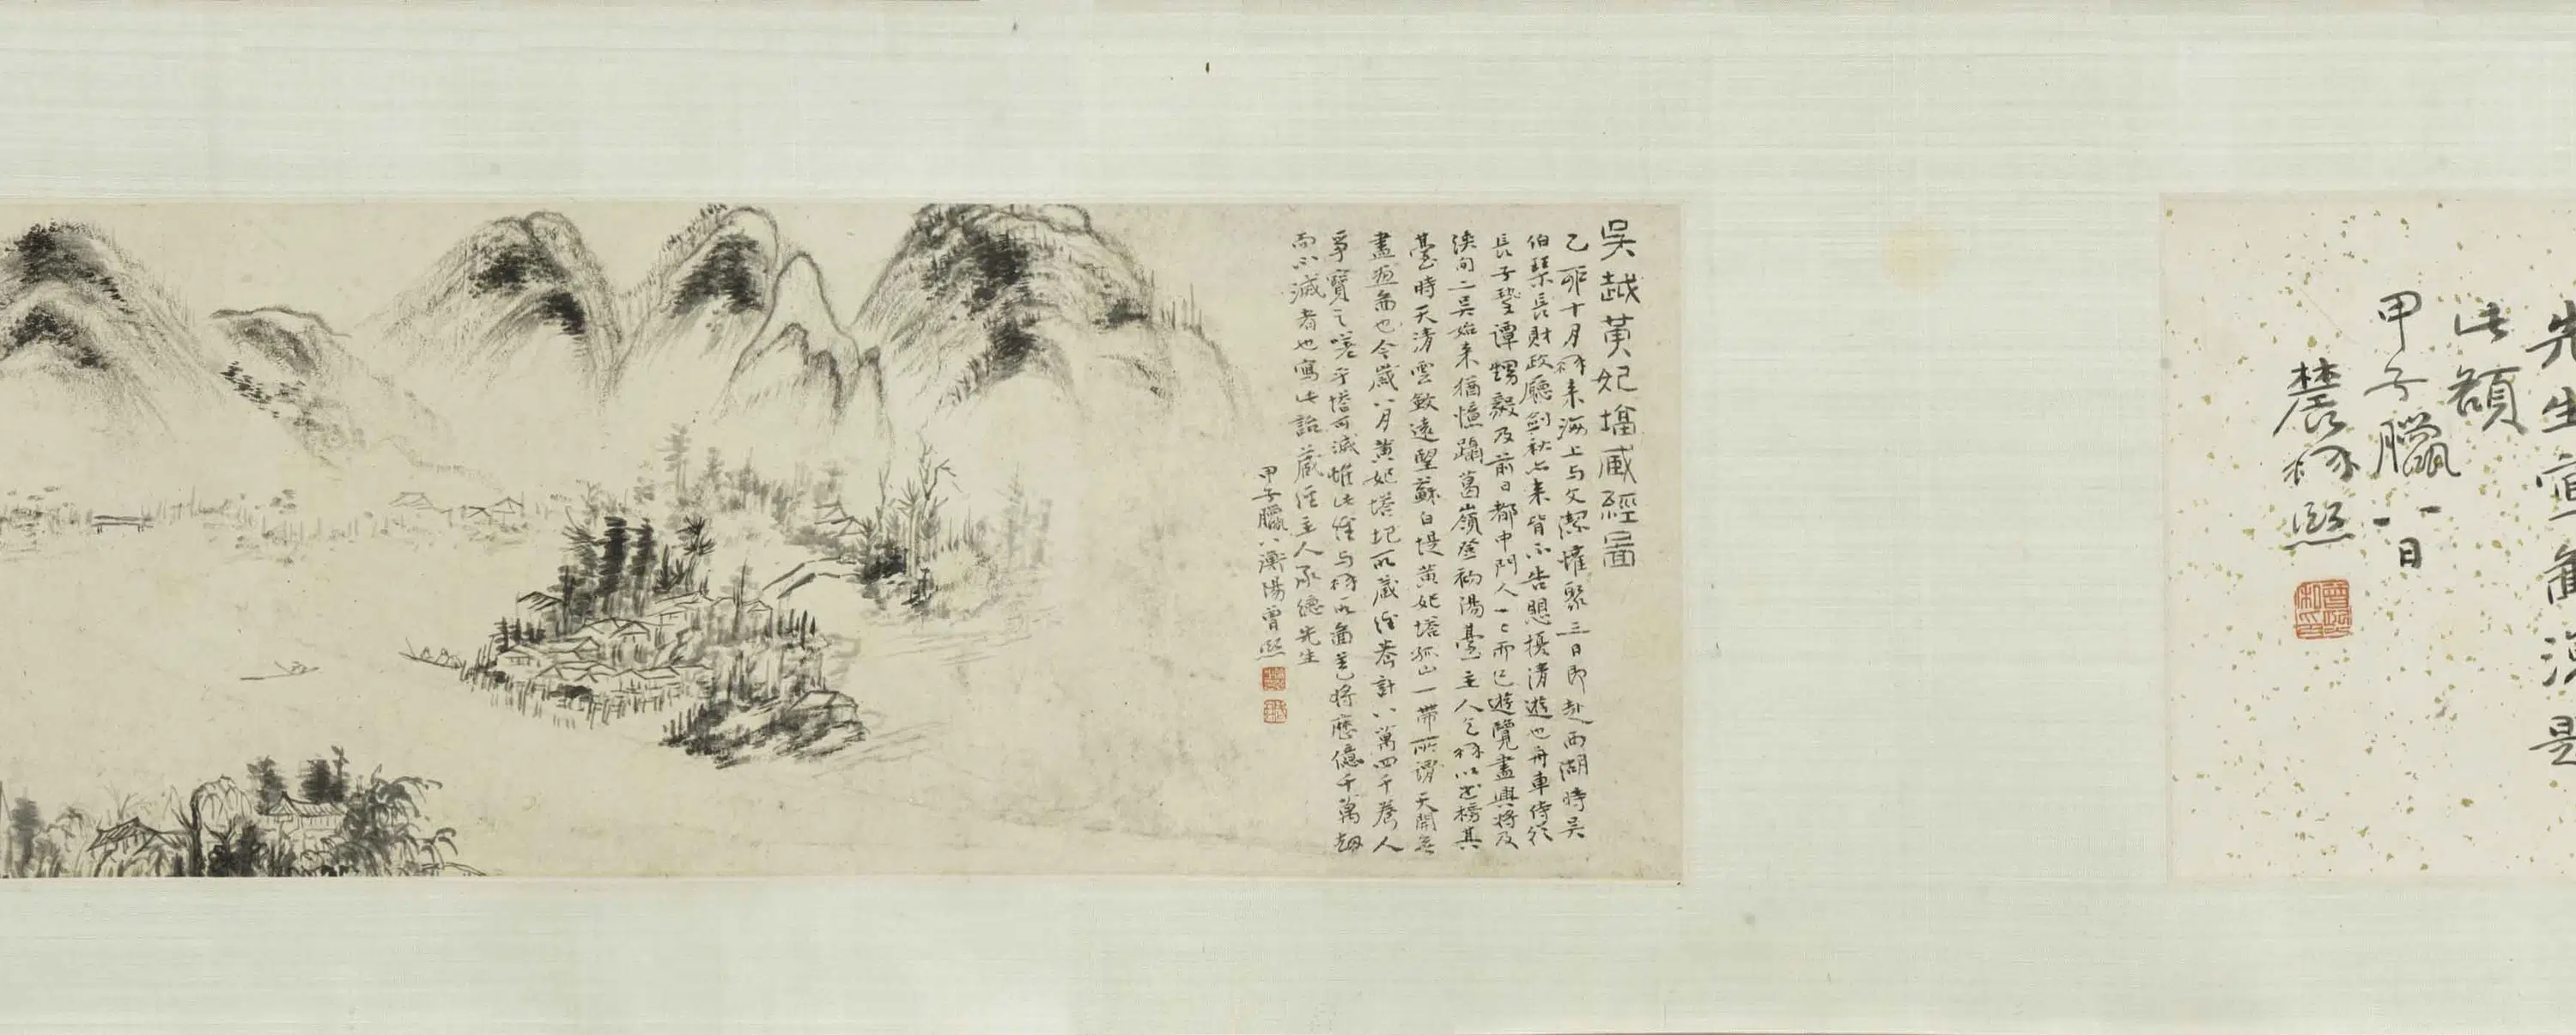 先生宜 是
此額
甲子臘八日
農髯熙
吳越黃妃墖藏經圖
乙卯十月髯來海上与文潔 聚三日即赴西湖時吳
伯琹長財政廳劍秋亦來皆不告 擾清遊也舟車侍從
長子 譚甥毅及前日都中門人一二而已遊覽盡興將及
浹旬二吳始來猶憶躡葛嶺登初陽臺主人乞髯以 榜其
臺時天清雲斂遠望蘇白堤黃妃塔孤山一帶所謂天開
畫 也今歲八月黃妃塔圮所藏經卷計八萬四千卷人
爭寶之嗟乎塔可滅惟此經与髯所圖 將歷億千萬劫
而不滅者也寫此詒藏經主人承德先生
甲子臘八衡陽曾熙